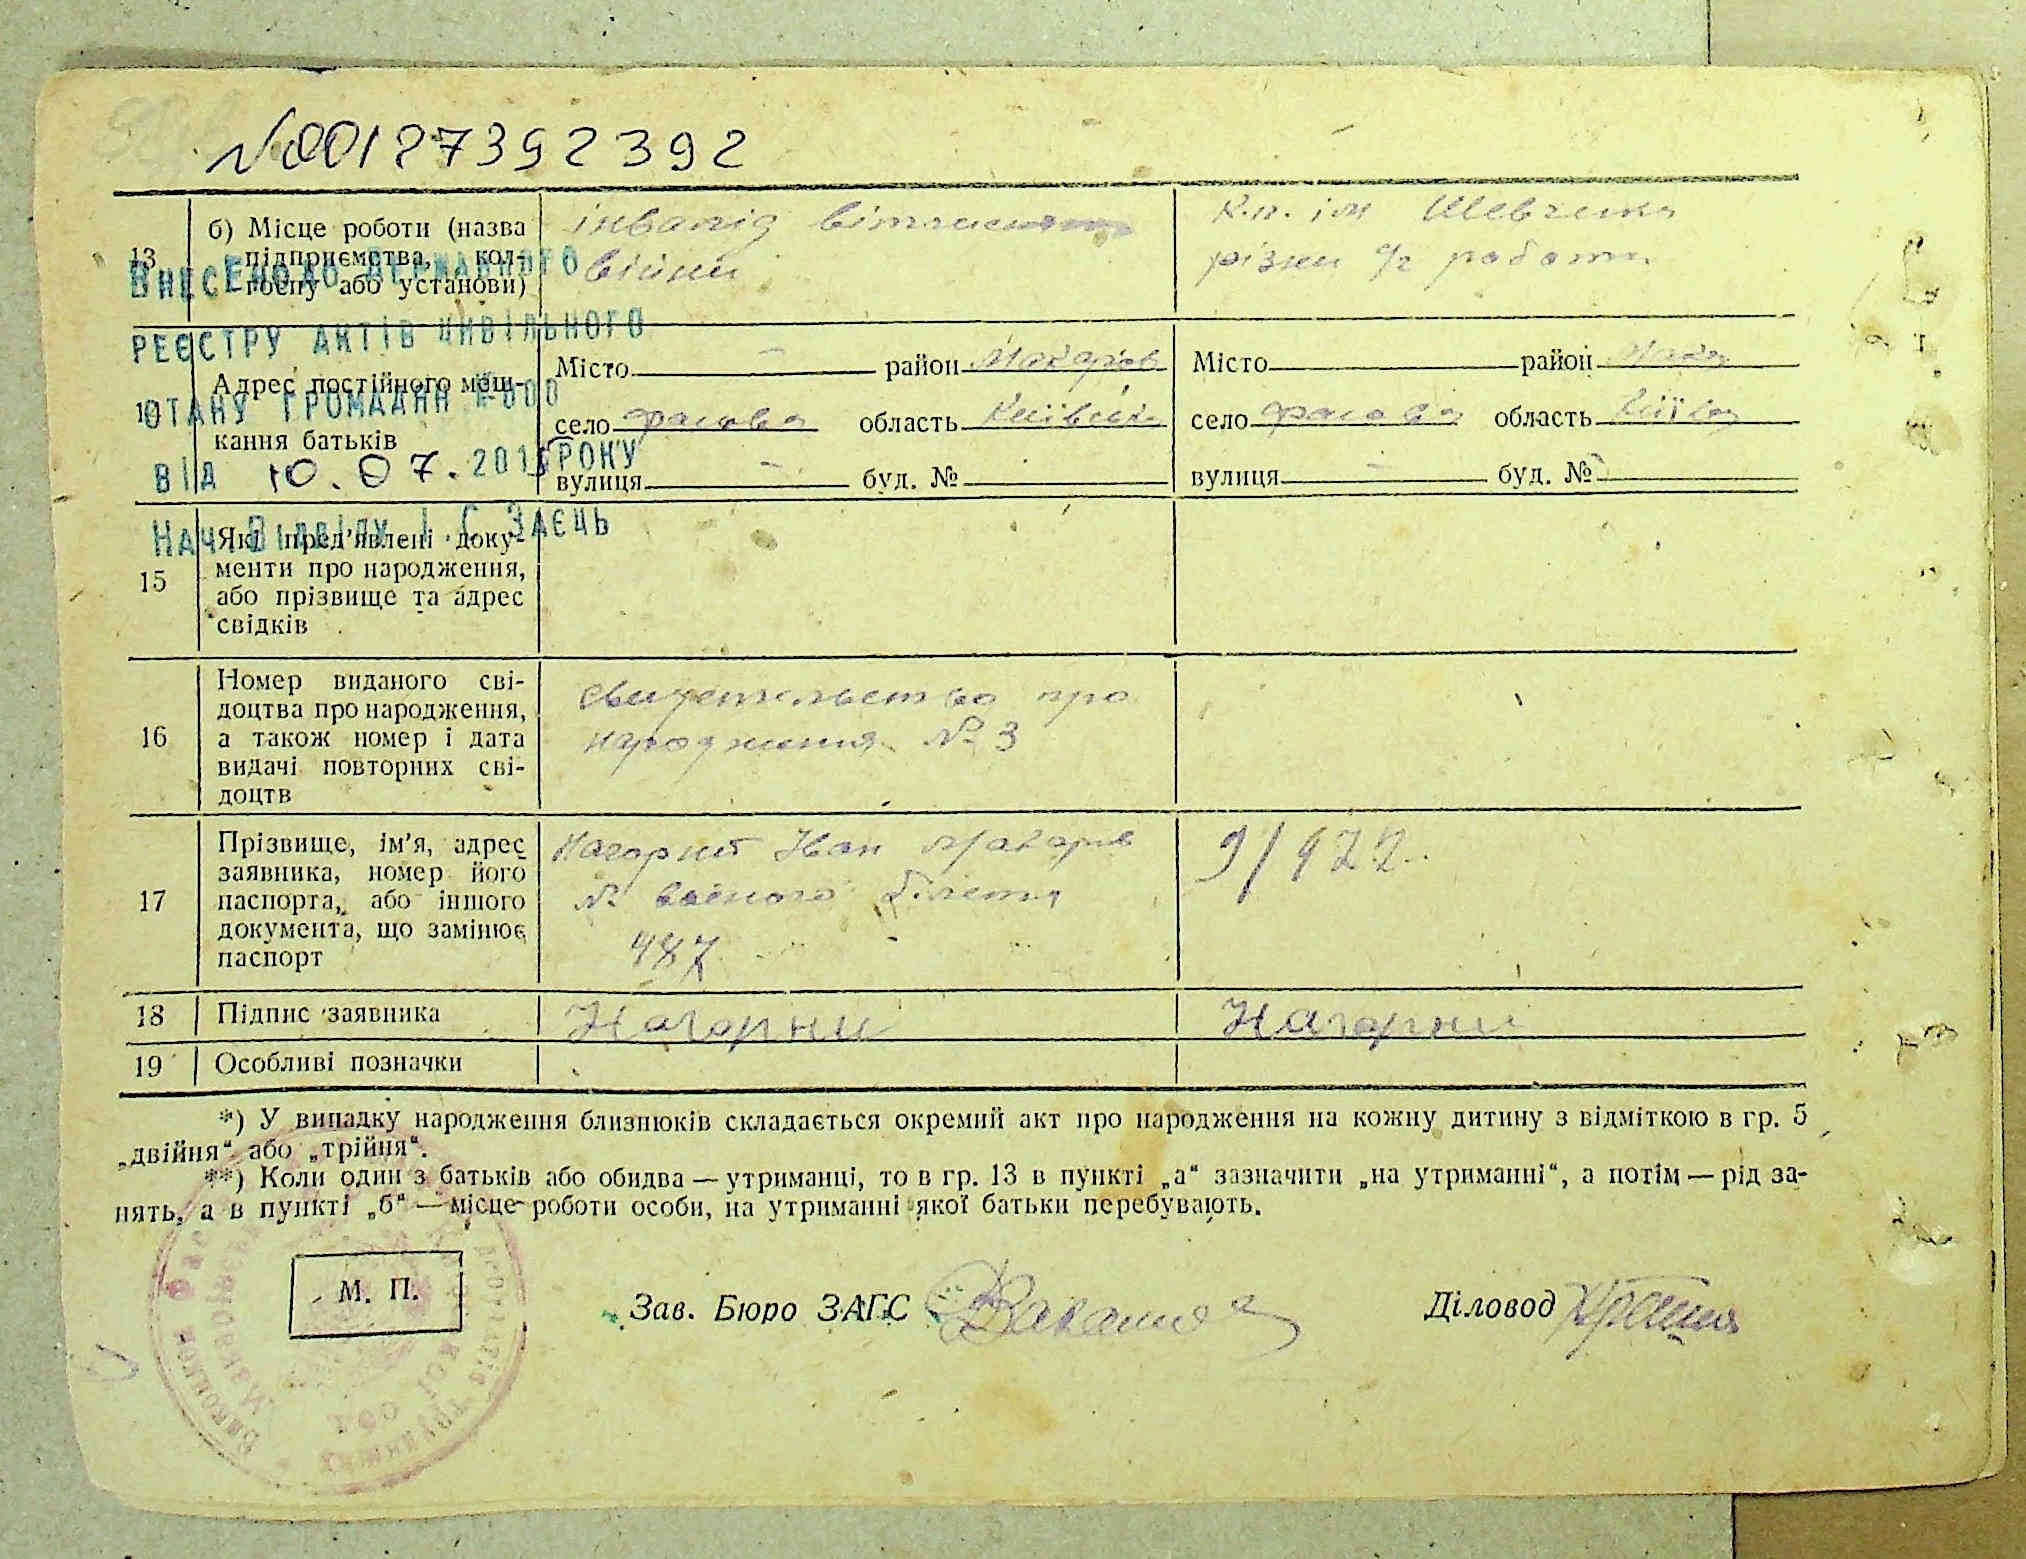 №00127392392
13 б) Місце роботи (назва підприємства, колгоспу або установи)
інвалід вітчизняної
війни
К-п. ім Шевченка
різни с/г работи
ВНЕСЕНО ДО ДЕРЖАВНОГО
РЕЄСТРУ АКТІВ ЦИВІЛЬНОГО
СТАНУ ГРОМАДЯН
ВІД 10.07.2015 РОКУ
НАЧ. ВІДДІЛУ І. С. ЗАЄЦЬ
Адрес постійного меш-
кання батьків
Місто — район Макарів
село Фасова область Київська
вулиця — буд. №
Місто район Мака
село Фасова область Київс
вулиця — буд. №
15 Які пред'явлені доку-
менти про народження,
або прізвище та адрес
свідків
16 Номер виданого сві-
доцтва про народження,
а також номер і дата
видачі повторних сві-
доцтв
свидетельство про
народження № 3
17 Прізвище, ім'я, адрес
заявника, номер його
паспорта, або іншого
документа, що замінює
паспорт
Нагорний Іван Макарів
№ военого білета
487
9/422
18 Підпис заявника Нагорни Нагорни
19 Особливі позначки
*) У випадку народження близнюків складається окремий акт про народження на кожну дитину з відміткою в гр. 5
„двійня“ або „трійня“.
**) Коли один з батьків або обидва — утриманці, то в гр. 13 в пункті „а“ зазначити „на утриманні“, а потім — рід за-
нять, а в пункті „б“ — місце роботи особи, на утриманні якої батьки перебувають.
М. П.
Зав. Бюро ЗАГС
Діловод